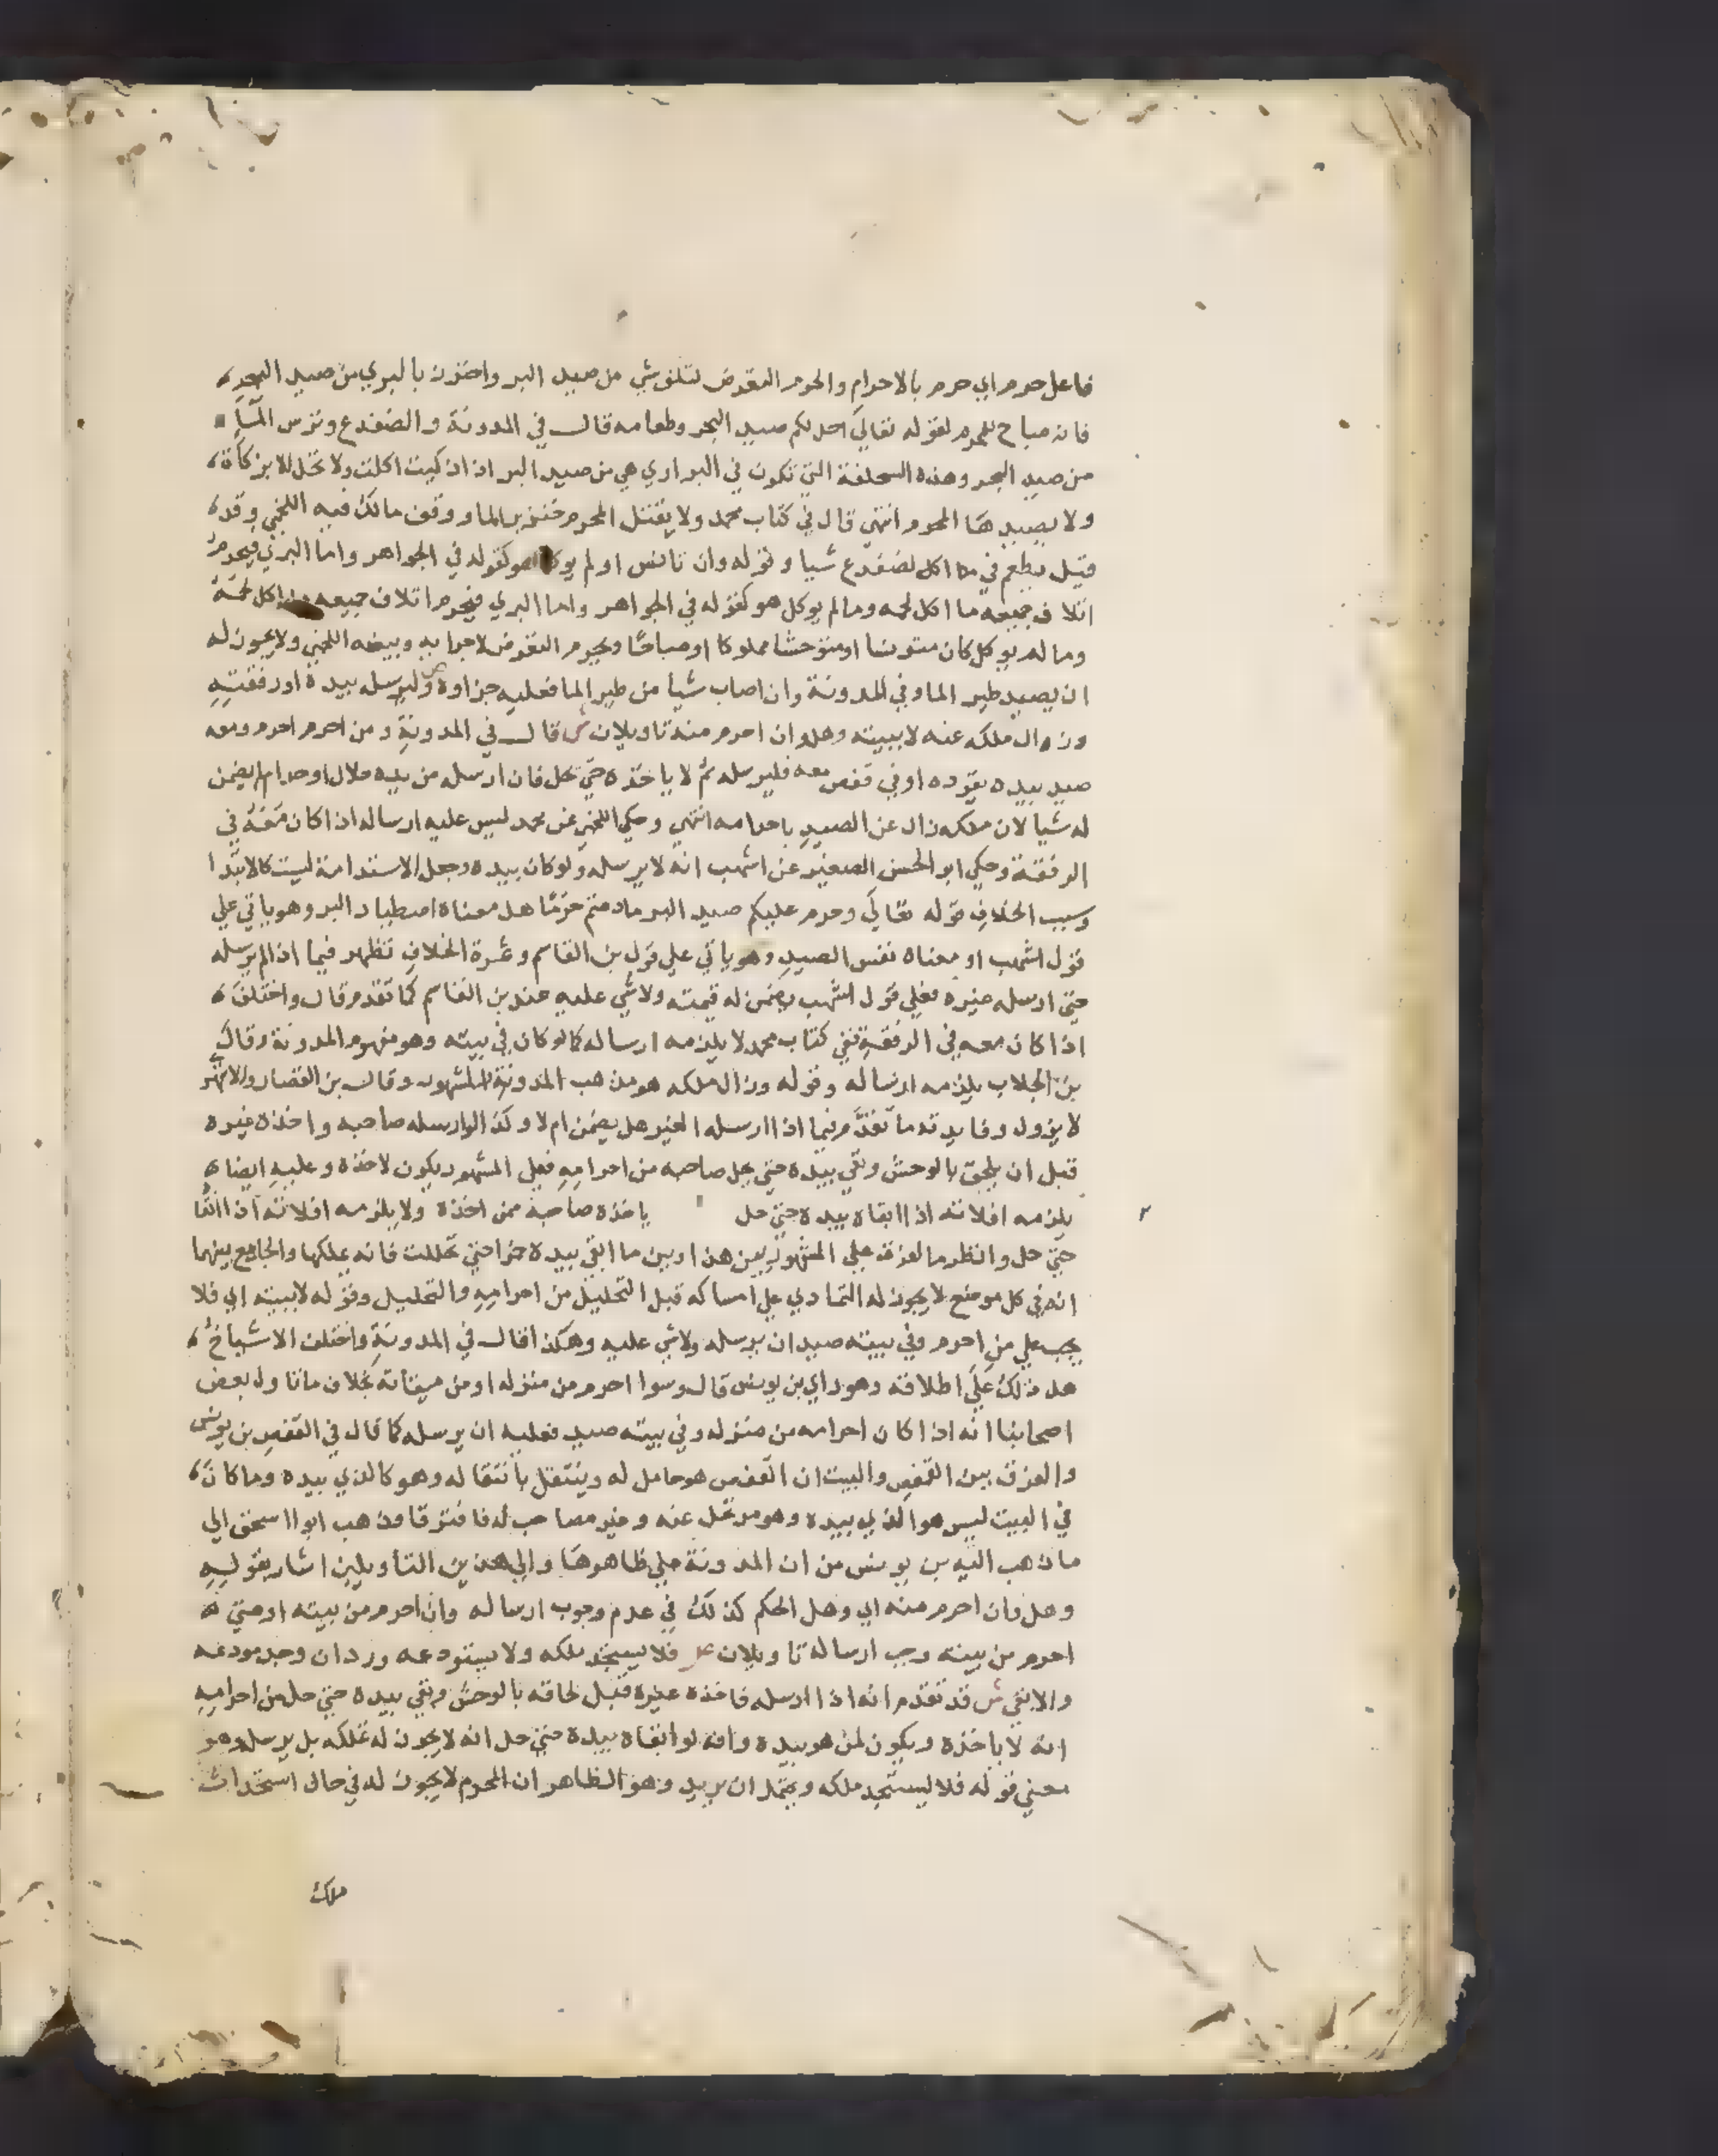 فاعل حرم اي حرم بالاحرام والحرم التعرض لتلف شي من صيد البر واحترز بالبري من صيد البحر
فانه مباح للمحرم لقوله تعالي احل لكم صيد البحر وطعامه قال في المدونة والضفدع وترس الماء
من صيد البحر وهذه السحلفة التي تكون في البراري هي من صيد البر اذا ذكيت اكلت ولا تحل الا بزكاة
ولا يصيدها المحرم انتهي قال في كتاب محمد ولا يقتل المحرم خنزير الما ووقف مالك فيه اللخمي وقد
قيل يطعم في ما اكل لضفدع شيا وقوله وان تانس او لم يوكل هو كقوله في الجواهر واما البري فيحرم
اتلاف جميعه ما اكل لحمه وما لم يوكل هو كقوله في الجواهر واما البري فيحرم اتلاف جميعه ما اكل لحمه
وما لم يوكل كان متونسا او متوحشا مملوكا او مباحا ويحرم التعرض لاجزايه وبيضه اللخمي ولا يجوز له
ان يصيد طير الما وفي المدونة وان اصاب شيا من طير الما فعليه جزاوه ص وليرسله بيده او رفقته
وزوال ملكه عنه لا ببيته وهل وان احرم منه تاويلان ش قال في المدونة ومن احرم احرم ومعه
صيد بيده يقوده او في قفص معه فليرسله ثم لا ياخذه حتي يحل فان ارسله من يده حلال او حرام لم يضمن
له شيا لان ملكه زال عن الصيد باحرامه انتهي وحكي اللخمي عن محمد ليس عليه ارساله اذا كان معه في
الرفقة وحكي ابو الحسن الصغير عن اشهب انه لا يرسله ولو كان بيده وجعل الاستدامة ليست كالابتدا
وسبب الخلاف قوله تعالي وحرم عليكم صيد البر ما دمتم حرما هل معناه اصطياد البر وهو ياتي علي
قول اشهب او معناه نفس الصيد وهو ياتي علي قول بن القاسم وثمرة الخلاف تظهر فيما اذا لم يرسله
حتي ارسله غيره فعلي قول اشهب يضمن له قيمته ولا شي عليه عند بن القاسم كما تقدم قال واختلف
اذا كان معه في الرفقة ففي كتاب محمد لا يلزمه ارساله كما لو كان في بيته وهو مفهوم المدونة وقال
بن الجلاب يلزمه ارساله وقوله وزال ملكه هو مذهب المدونة المشهور وقال بن القصار والابهري
لا يزول وفايدته ما تقدم فيما اذا ارسله الغير هل يضمن ام لا وكذا لو ارسله صاحبه واخذه غيره
قبل ان يلحق بالوحش وبقي بيده حتي حل صاحبه من احرامه فعلي المشهور يكون لاخذه وعليه ايضا
يلزمه افلاته اذا ابقاه بيده حتي حل ياخذه صاحبه ممن اخذه ولا يلزمه افلاته اذا ابقا
حتي حل وانظر ما الفرق علي المشهور بين هذا وبين ما ابقي بيده خمرا حتي تخللت فانه يملكها والجامع بينهما
انه في كل موضع لا يجوز له التمادي علي امساكه قبل التحليل من احرامه والتحليل وقوله لا ببيته اي فلا
يجب علي من احرم وفي بيته صيد ان يرسله ولا شي عليه وهكذا قال في المدونة واختلف الاشياخ
هل ذلك علي اطلاقه وهو راي بن يونس قال وسوا احرم من منزله او من ميقاته بخلاف ما تاول بعض
اصحابنا انه اذا كان احرامه من منزله وفي بيته صيد فعليه ان يرسله كما قال في القفص بن يونس
والفرق بين القفص والبيت ان القفص هو حامل له وينتقل بانتقاله وهو كالذي بيده وما كان
في البيت ليس هو الذي بيده وهو مرتحل عنه وغير مصاحب له فافترقا وذهب ابو اسحق الي
ما ذهب اليه بن يونس من ان المدونة علي ظاهرها والي هذين التاويلين اشار بقوليه
وهل وان احرم منه اي وهل الحكم كذلك في عدم وجوب ارساله وان احرم من بيته او متي
احرم من بيته وجب ارساله تاويلان ص فلا يستجد ملكه ولا يستودعه ورد ان وجد مودعه
والا بقي ش قد تقدم انه اذا ارسله فاخذه غيره قبل لحاقه بالوحش وبقي بيده حتي حل من احرامه
انه لا ياخذه ويكون لمن هو بيده وانه لو ابقاه بيده حتي حل انه لا يجوز له تملكه بل يرسله وهو
معني قوله فلا يستجد ملكه ويحتمل ان يريد وهو الظاهر ان المحرم لا يجوز له في حال استحداث
ملك